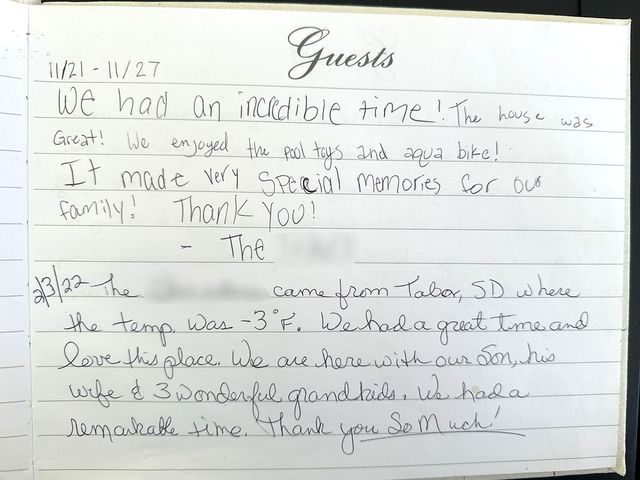 Guests
11/21 - 11/27
We had an incredible time! The house was
Great! We enjoyed the pool toys and aqua bike!
It made very special memories for our
family! Thank you!
- The
2/3/22 The came from Tabor, SD where
the temp. was -3°F. We had a great time and
love this place. We are here with our Son, his
wife & 3 wonderful grandkids. We had a
remarkable time. Thank you So Much!